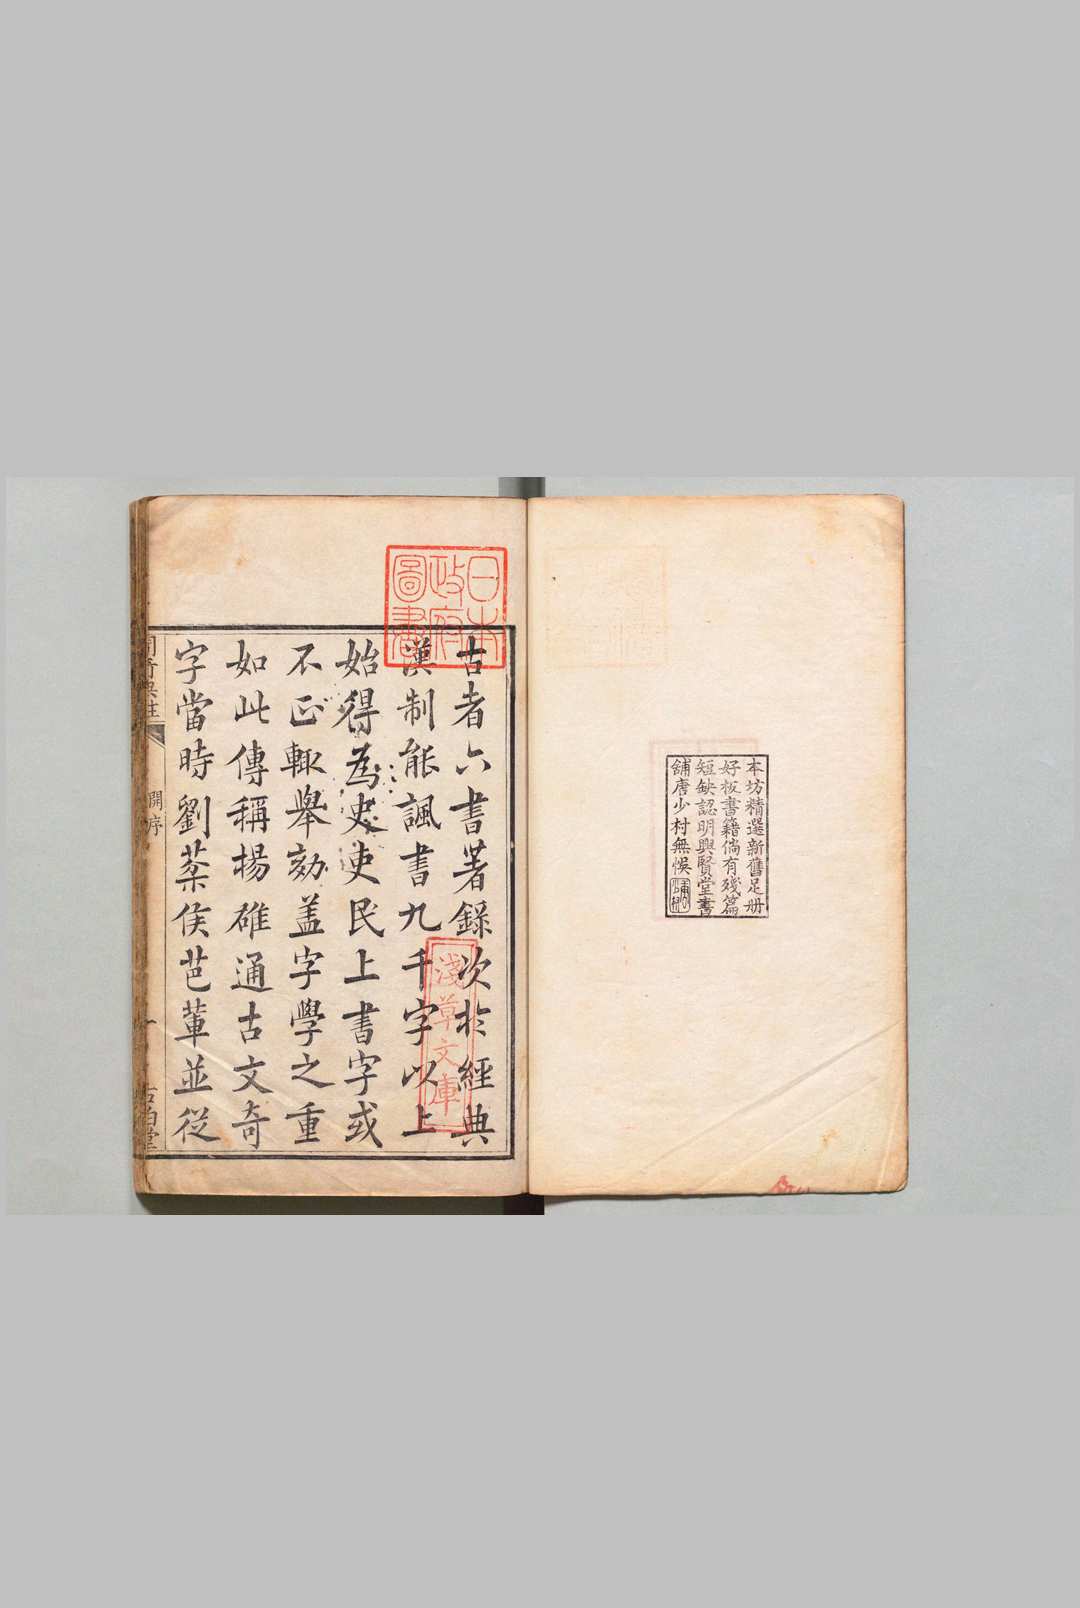 本坊精選新舊足册
好板書籍倘有殘篇
短缺認明興賢堂書
舖唐少村無悞
日本
政府
圖書
古者六書著錄次於經典
漢制能諷書九千字以上
始得為史吏民上書字或
不正輙舉劾蓋字學之重
如此傳稱楊雄通古文奇
字當時劉棻侯芭軰並從
淺草文庫
開序
一